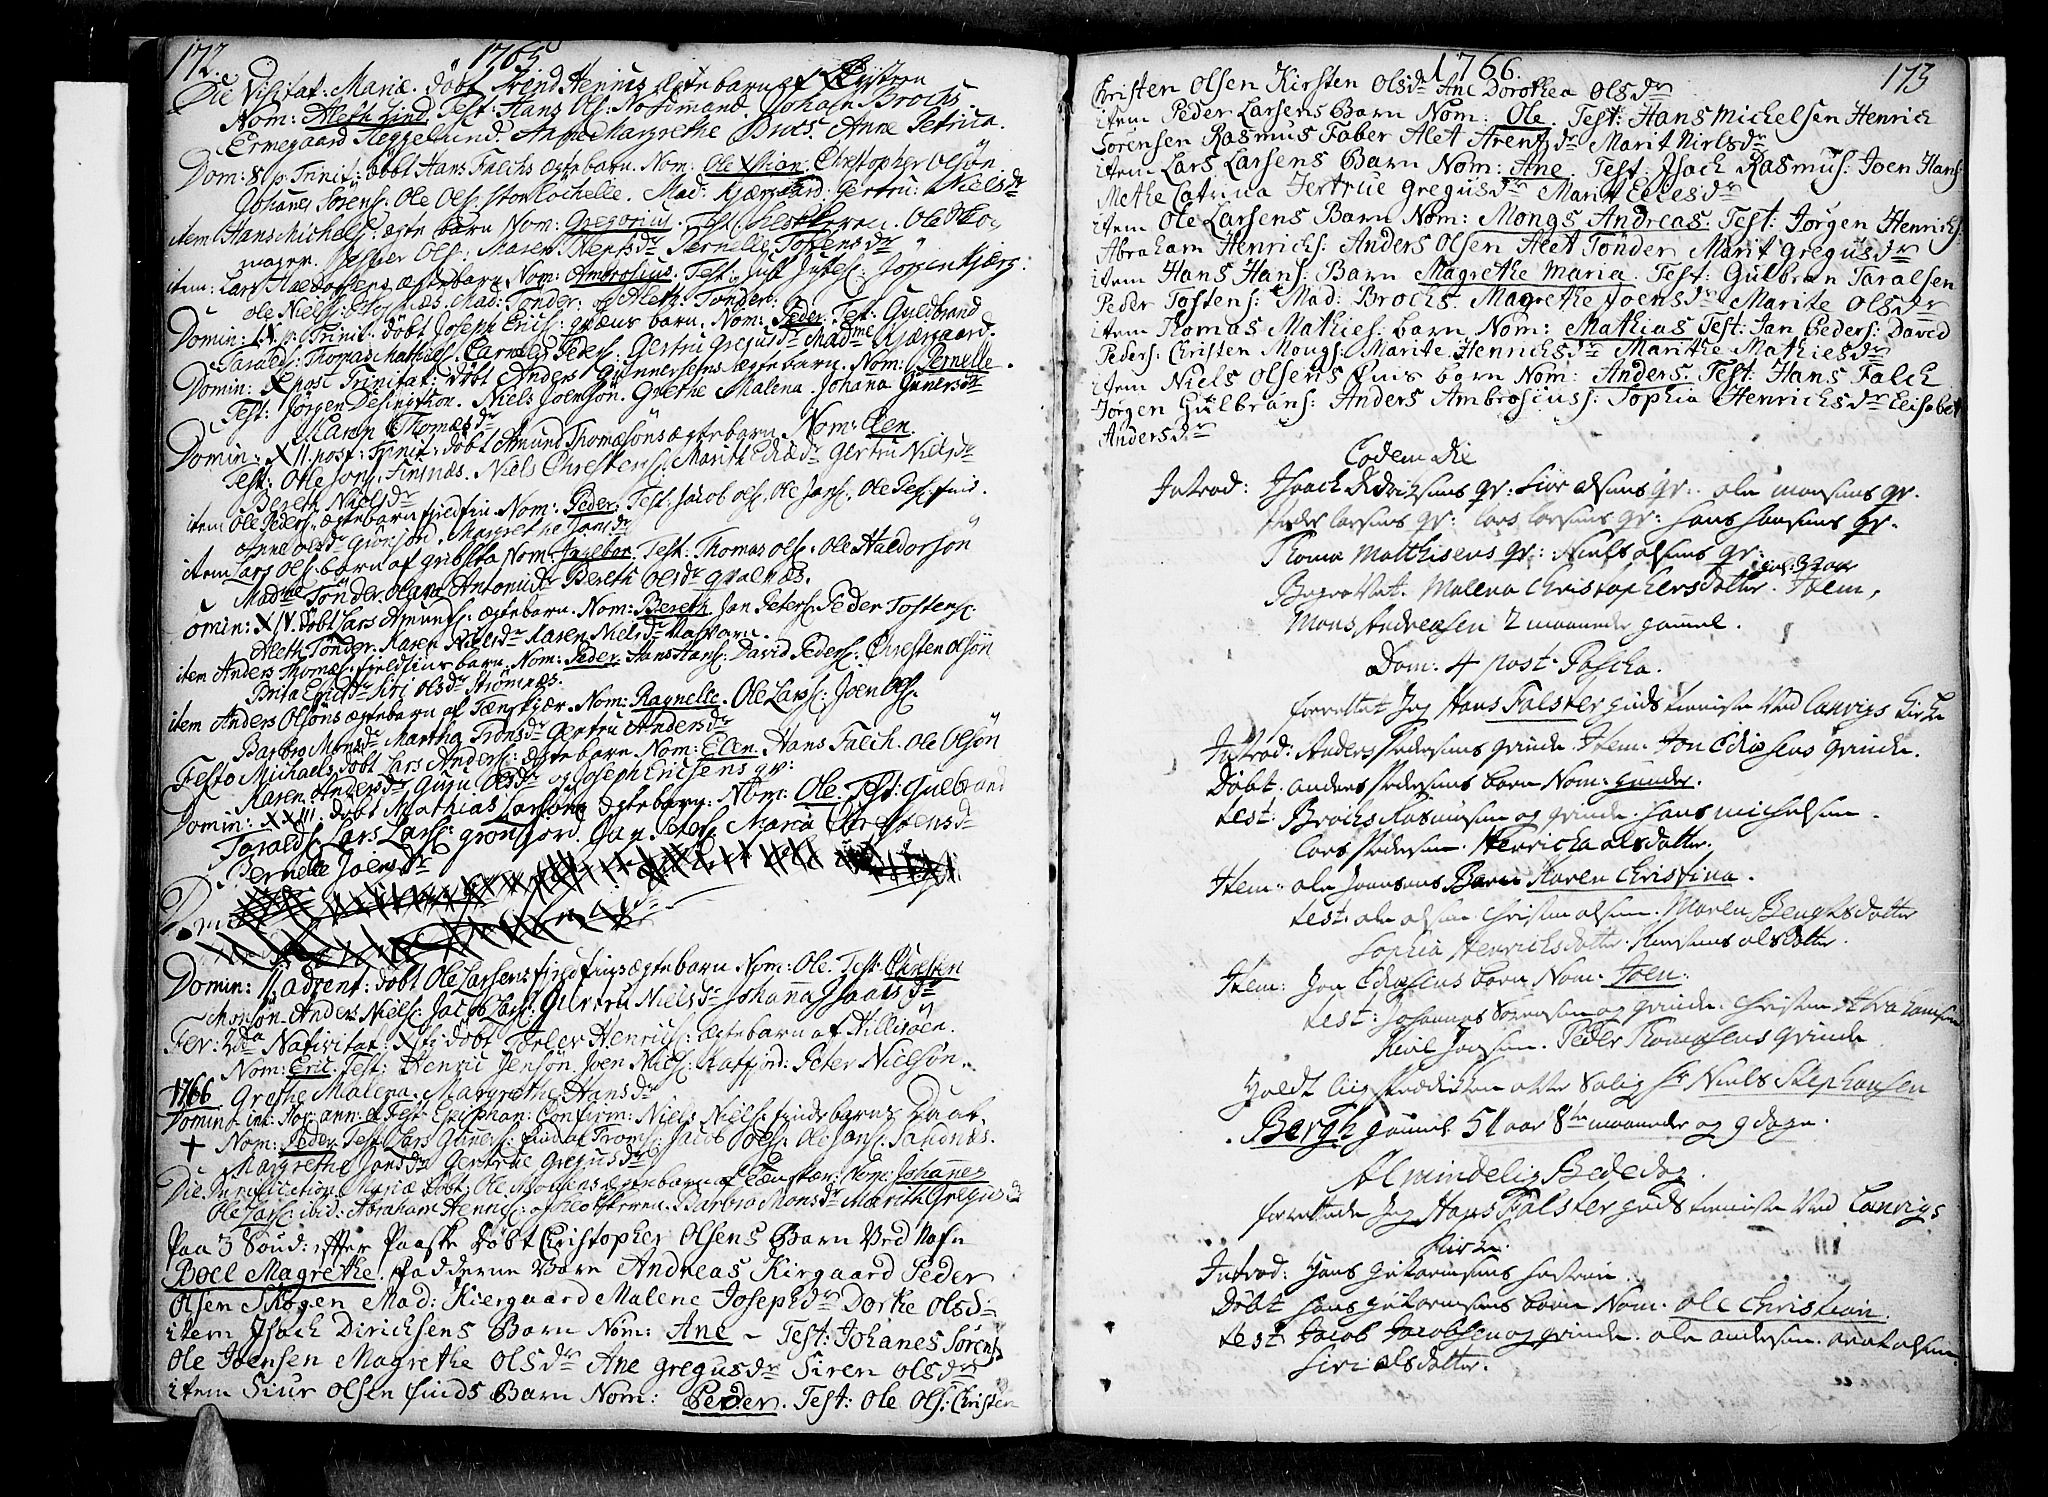 172. 1765
Die Visitat: Mariæ. döbt Trend Hennings ægte barn af
Nom: Aleth Lind Test: Hans Ol: Nordmand. Johan Brochs.
Ermegaard Heggelund, Anne Margrethe Brocs. Anne Petrica.
Dom: 8 p: Trinit: döbt Hans Falchs ægte barn. Nom: Ole Xstian. Christopher Olsön
Johanes Sörens: Ole Ols: Mad: Kjærgaard. Gertru: Nielsdr
item Hans Michels: ægte barn Nom: Gregorius. Test:
Jesper Ols: Maren Jensdr Pernelle Tostensdr
item: Lars Haldorsens ægte barn Nom: Ambrosius. Test: Just Justes: Jörgen Kjærg:
Ole Niels: Mad: Tönder: og Aleth: Tönder.
Domin: IX. p: Trinit: döbt Joseph Erics: qvæns barn. Nom: Peder Test: Guldbrand
Taralds: Thomas Mathies: Cornelis Peders: Gertru Gregusdr Madme Kjærgaard.
Domin: X post Trinitat: döbt Anders Gunnersens ægte barn. Nom: Pernelle.
Test: Jörgen Desington. Niels Joensön. Grethe Malena. Johana Gunersdr
Karen Thomæsdr
Domin: XII. post: Trinit: döbt Amund Thomæsöns ægte barn Nom: Elen.
Test: Ole Jons: Finsnæs. Niels Christens: Marith Gertru Nielsdr
Bereth Nielsdr
item: Ole Peders: ægte barn fieldfin Nom: Peder. Test: Jacob Ols: Ole Jans: Ole Pes: find.
Anne Olsdr Margrethe Jansdr
item Lars Ols: barn af Nom: Ingebor Test: Thomas Ols: Ole Haldorsön
Madme Tönder Antonidr Bereth Olsdr qvalnæs.
Domin: XIV. döbt Lars Amunds: ægte barn. Nom: Bereth Jan Peters: Peder Tostens:
Aleth Tönder. Karen Nielsdr Karen Nielsdr
item Anders Thomæs: fieldfins barn. Nom: Peder Hans Hans: David Peders: Christen Olsön
Brita Ericsdr Siri Olsdr Strömnæs.
item Anders Olsöns ægte barn af Tænskjær. Nom: Ragnelle. Ole Lars: Joen Ols:
Barbro Monsdr Martha Tronsdr Gertru Andersdr
Festo Michaels döbt Lars Anders: ægte barn Nom: Elen Hans Falch. Ole Olsön
Karen Andersdr Guru Olsdr og Joseph Ericsens qv:
Domin: XXIII. döbt Mathias Larsöns ægte barn: Nom: Ole Test: Gulbrand
Taralds: Lars Lars: grönfjord. Jan Peters: Maria Christensdr
Pernelle Joensdr
Domin: II. advent: döbt Ole Larsens findfins ægte barn Nom: Ole. Test: Christen
Monsön Anders Niels: Jacob Lars: Gertru Nielsdr Johanna Isaacsdr
Fer: 2da Nativitat: Xsti döbt Torlev Henrics: ægte barn af Hillisöen.
Nom: Eric. Test: Henric Jensön. Joen Niels: Katfjord: Peter Nielsön.
1766 Grethe Malena. Margrethe Hansdr
Domin: int: nov: ann: et Fest: Epiphan: Confirm: Niels Niels: finds barns Daab.
+ Nom: Peder Test: Lars Guners: find af Troms: Jacob Joes: Ole Jans: Sandnæs.
Margrethe Jansdr Gertrue Gregusdr
Die Purificationis Mariæ döbt: Ole Monsens ægte barn af Tænskær: Nom: Johannes
Ole Lars: ibid: Abraham Henrics: Barbro Monsdr Marith Gregusdr
Paa 3 Sönd: effter Paaske döbt Christopher Olsens Barn Ved Nafn
Boel Magrethe. Fadderne Vare Andreas Kirgaard Peder
Olsen Skogen Mad: Kiergaard Malene Josephdr Dorke Olsd:
item Isach Diricksens Barn Nom: Ane – Test: Johanes Sörens:
Ole Joensen Magrethe Olsdr Ane gregusdr Siren Olsdr
item Siur Olsen finds Barn Nom: Peder. Test: Ole Ols: Christen
1766. 173
Christen Olsen Kirsten Olsdr Ane Dorothea Olsdr
item Peder Larsens Barn Nom: Ole. Test: Hans Michelsen Henrich
Sörensen Rasmus Faber Alet Arentsdr Marit Nielsdr
item Lars Larsens Barn Nom: Ane. Test: Isach Rasmus: Joen Hans:
Methe Catrina Jertrue Gregusdr Marit Ellesdr
item Ole Larsens Barn Nom: Mongs Andreas. Test: Jørgen Henrichs:
Abraham Henrichs: Anders Olsen Alet Tönder Marit Gregusdr
item Hans Hans: Barn Magrethe Maria. Test: Gulbran Taralsen
Peder Tostens: Mad: Brochs. Magrethe Joensdr Marite Olsdr
item Thomas Mathies: barn Nom: Mathias Test: Jan Peders: David
Peders: Christen Mongs: Marite Henrichsdr Marithe Mathiesdr
item Niels Olsens Fins barn Nom: Anders. Test: Hans Falch
Jørgen Gulbrans: Anders Ambrosiuss: Sophia Henrichsdr Elisabet
Andersdr
Eodem Die
Introd: Isaach Didrichsens qv: Siur olsens qv: ole monsens qv.
Peder larsens qv: Lars larsens qv: hans hansens qv.
Thoma Matthisens qv: Niels olsens qv:
Begravet. Malena Christophersdotter. Item,
Mons Andreasen 2 maaneder gammel.
Dom: 4 post: Pascha.
forrettet Jeg Hans Falster guds tieniste Ved Lanvigs Kirke
Introd: Anders Pedersens qvinde. Item: Jon Ediasens qvinde.
Döbt. anders Pedersens barn Nom: gunder.
test: Brochs Rasmusen og qvinde. hans michelsen.
Lars Pedersen. Henricha olsdotter.
Item: ole Joensens Barn Karen Christina.
test: ole olsen. Christen olsen. Maren Bengtsdotter
Sophia Henrichsdotter. Kirsten olsdotter.
Item: Jon Ediasens barn Nom: Joen.
test: Johannes Sörensen og qvinde. Christen Abrahamsen
Joensen. Peder Thomesens qvinde
Holdt liig Prædicken over Salig Hr Niels Stephansen
Bergh gammel 51 aar 8te maaneder og 9 dage.
Almindelig Bededag
forrettede Jeg Hans Falster guds tieniste Ved Lanvigs
Kirke.
Introd: Hans hustrue.
Döbt hans barn Nom: ole Christian.
test: Jacob Jacobsen og qvinde. ole andersen. olsen.
Siri olsdotter.